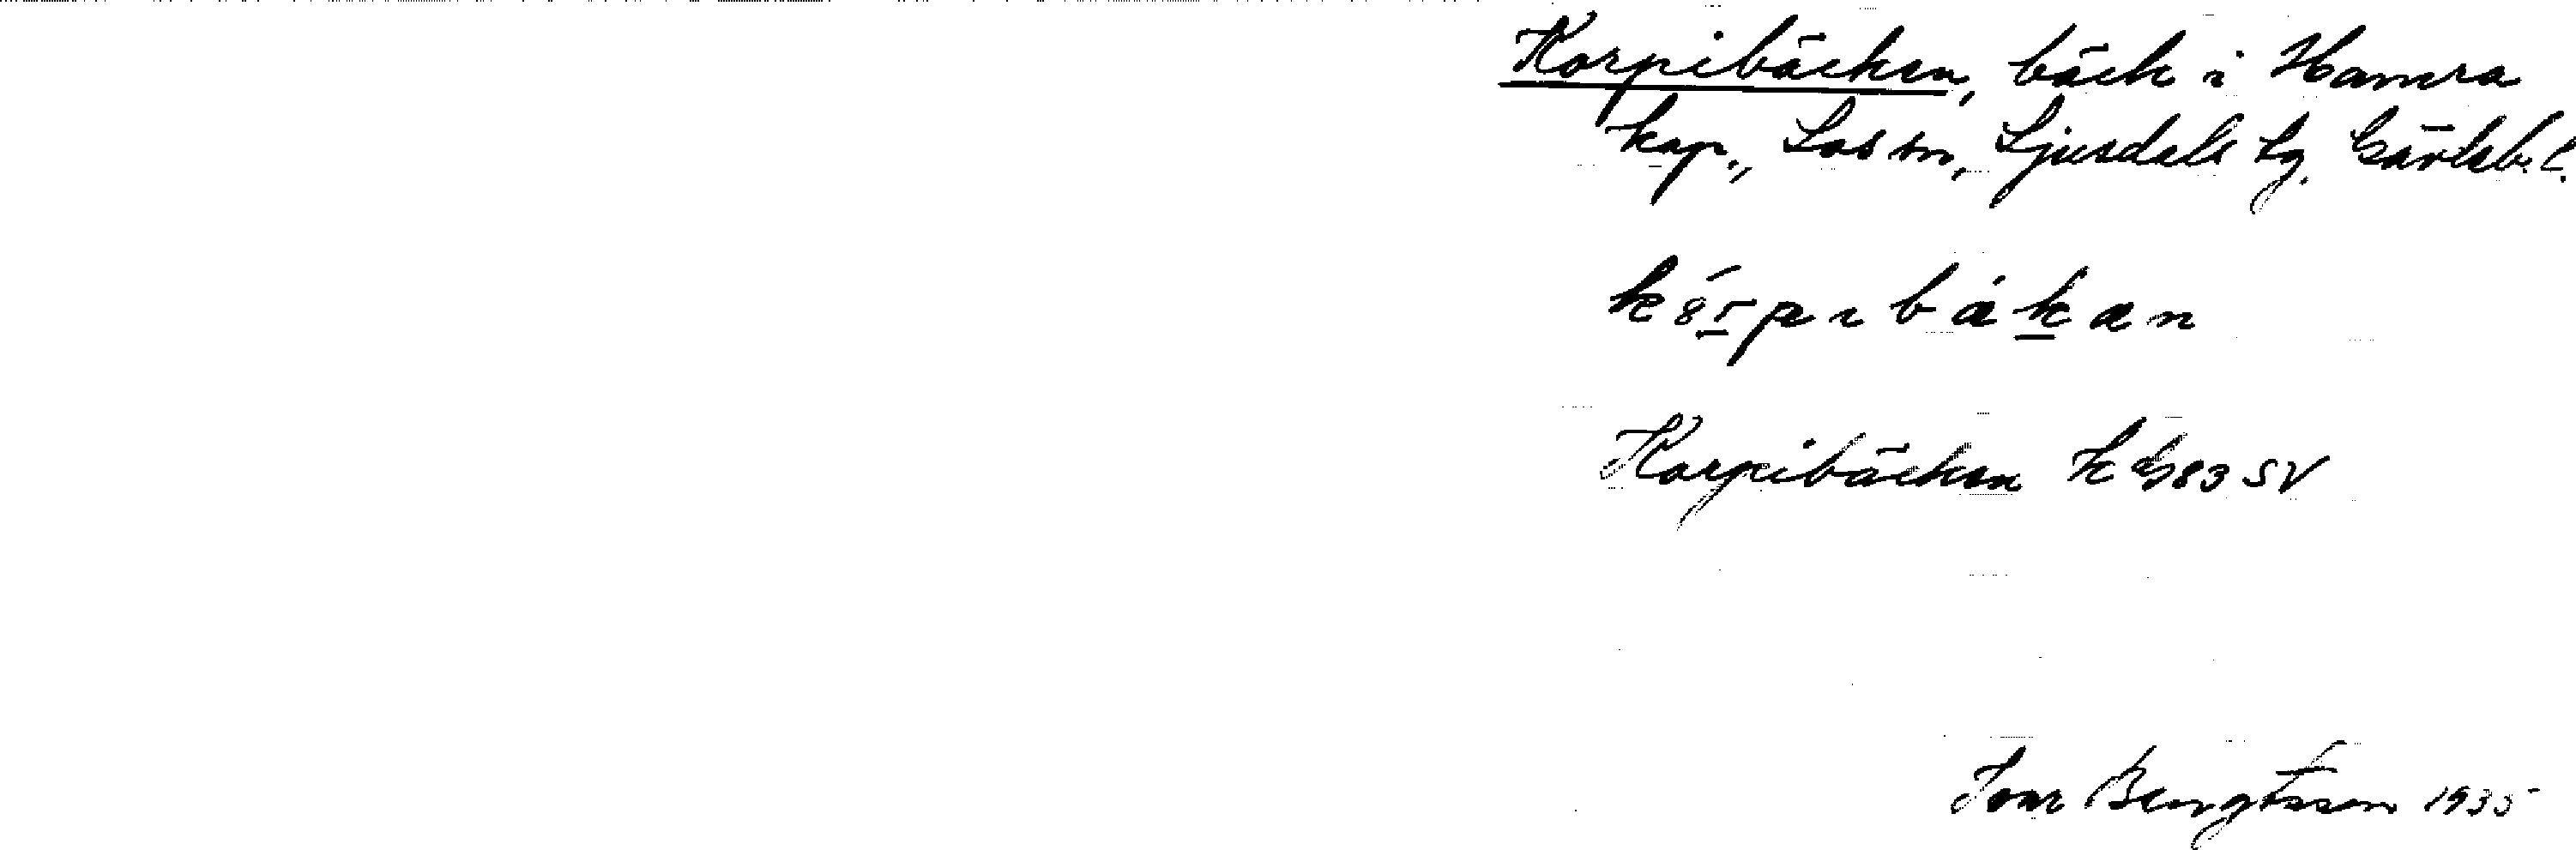 Korpibäcken, bäck i Hamra
kap., Los sn, Ljusdals tg. Gävleb. l.
Korpibäcken k G83 SV
Ivar Bengtsson 1935